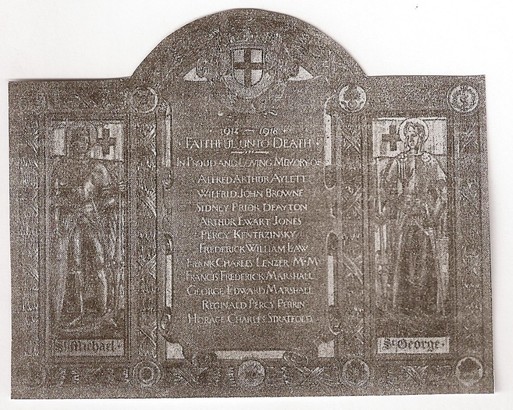 1914 — 1918
FAITHFUL UNTO DEATH
IN PROUD AND LOVING MEMORY OF
ALFRED ARTHUR AYLETT
WILFRID JOHN BROWNE
SIDNEY PRIOR DEAYTON
ARTHUR EWART JONES
PERCY KENTRZINSKY
FREDERICK WILLIAM LAW
FRANK CHARLES LENZER M.M.
FRANCIS FREDERICK MARSHALL
GEORGE EDWARD MARSHALL
REGINALD PERCY PERRIN
HORACE CHARLES STRATFOLD
St Michael
St George